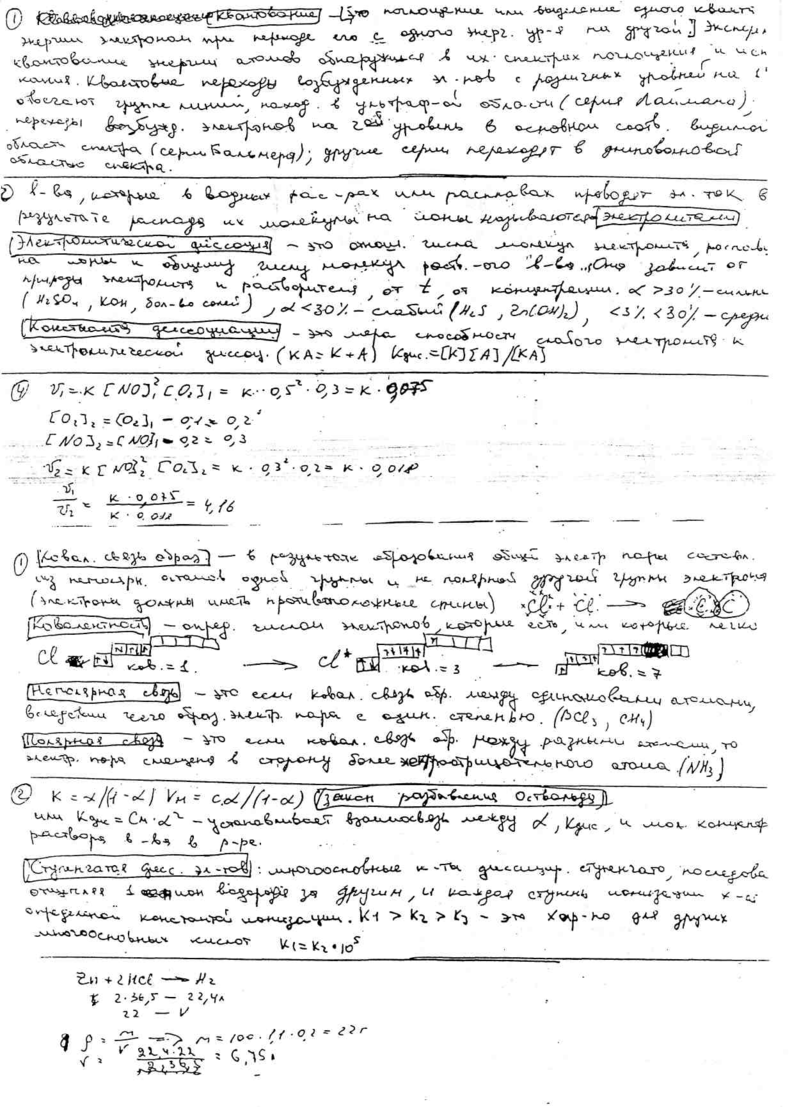 ① квантование – [это поглощение или выделение одного кванта
энергии электроном при переходе его с одного энерг. ур-я на другой] Экспер.
квантование энергии атомов обнаружился в их спектрах поглощения и исп
кания. Квантовые переходы возбужденных эл-нов с различных уровней на 1
отвечают группе линий, наход. в ультраф-ой области (серия Лаймана);
переходы возбужд. электронов на 2ой уровень в основном соотв. видимой
области спектра (серии Бальмера); другие серии переходят в
областью спектра.
② в-ва, которые в водных рас-рах или расплавах проводят эл. ток в
результате распада их молекулы на ионы называются электролитами
Электролитической диссоция – это отнош. числа молекул электролита, распавш.
на ионы к общему числу молекул раств.-ого в-ва. Она зависит от
природы электролита и растворителя, от t, от концентрации. α >30% – сильн
(H₂SO₄, KOH, бол-во солей), α <30% – слабый (H₂S, Zn(OH)₂), <3% <30% – средн
Константа диссоциации – это мера способности слабого электролита к
электролитической диссоц. (KA = K + A) Kдис. = [K][A]/[KA]
④ v₁ = K [NO]₁² [O₂]₁ = K · 0,5² · 0,3 = K · 0,075
[O₂]₂ = [O₂]₁ – 0,1 = 0,2
[NO]₂ = [NO]₁ – 0,2 = 0,3
v₂ = K [NO]₂² [O₂]₂ = K · 0,3² · 0,2 = K · 0,018
v₁/v₂ = K · 0,075 / K · 0,018 = 4,16
① Ковал. связь образ – в результате образования общей электр пары составл.
из неполярн. одной группы и не полярной другой группы электрона
(электроны должны иметь противоположные спины) Cl + Cl →
Ковалентность – опред. числом электронов, которые есть, или которые легко
Cl ков. = 1 → Cl* ков. = 3 — ков. = 7
Неполярная связь – это если ковал. связь обр. между одинаковыми атомами,
вследствии чего образ. электр. пара с один. степенью. (BCl₃, CH₄)
Полярная связь – это если ковал. связь обр. между разными атомами, то
электр. пара смещена в сторону более электроотрицательного атома (NH₃)
② K = α/(1-α) Vм = cα/(1-α) (закон разбавления Оствальда)
или Kдис = Cм · α² – устанавливает взаимосвязь между α, Kдис, и мол. концентр
раствора в-ва в р-ре.
Ступенчатая дисс. эл-тов: многоосновные к-ты диссоциир. ступенчато, последова
отщепляя 1 ион водорода за другим, и каждая ступень ионизации х-ся
определенной константой ионизации. K₁ > K₂ > K₃ – это хар-но для других
многоосновных кислот K₁ = K₂ · 10⁵
Zn + 2HCl → H₂
2·36,5 – 22,4л
22 — V
ρ = m/V => m = 100 · 1,1 · 0,2 = 22г
V = 22,4·22 / 2·36,5 = 6,75л